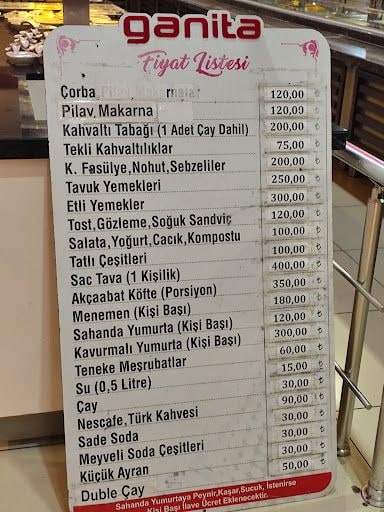 ganita
Fiyat Listesi
Çorba,Pilav,Makarnalar 120,00 ₺
Pilav,Makarna 120,00 ₺
Kahvaltı Tabağı (1 Adet Çay Dahil) 200,00 ₺
Tekli Kahvaltılıklar 75,00 ₺
K. Fasülye,Nohut,Sebzeliler 200,00 ₺
Tavuk Yemekleri 250,00 ₺
Etli Yemekler 300,00 ₺
Tost,Gözleme,Soğuk Sandviç 120,00 ₺
Salata,Yoğurt,Cacık,Kompostu 100,00 ₺
Tatlı Çeşitleri 100,00 ₺
Sac Tava (1 Kişilik) 400,00 ₺
Akçaabat Köfte (Porsiyon) 350,00 ₺
Menemen (Kişi Başı) 180,00 ₺
Sahanda Yumurta (Kişi Başı) 120,00 ₺
Kavurmalı Yumurta (Kişi Başı) 300,00 ₺
Teneke Meşrubatlar 60,00 ₺
Su (0,5 Litre) 15,00 ₺
Çay 30,00 ₺
Nescafe,Türk Kahvesi 90,00 ₺
Sade Soda 30,00 ₺
Meyveli Soda Çeşitleri 30,00 ₺
Küçük Ayran 30,00 ₺
Duble Çay 50,00 ₺
Sahanda Yumurtaya Peynir,Kaşar,Sucuk, İstenirse
Kişi Başı İlave Ücret Eklenecektir.